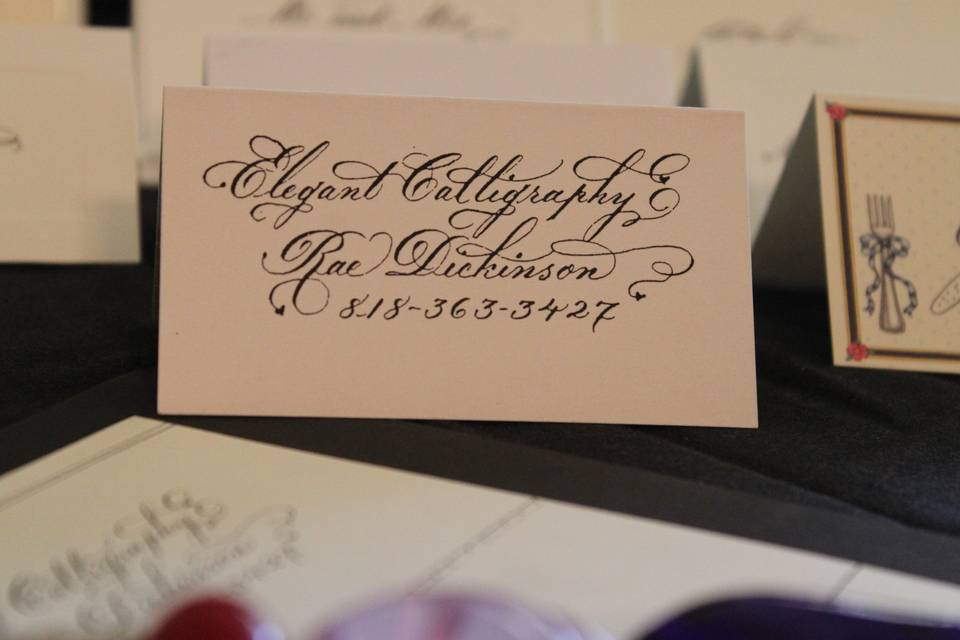 Elegant Calligraphy
Rae Dickinson
818-363-3427
Calligraphy